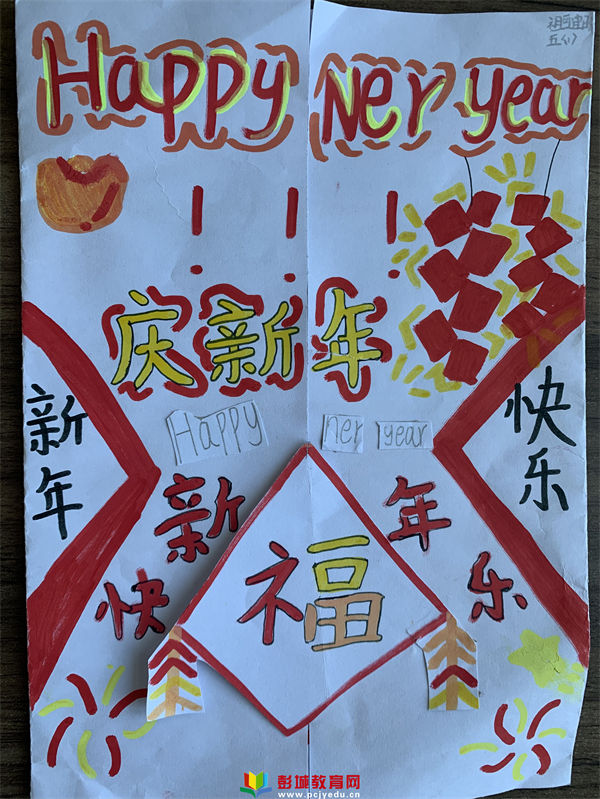 五(1)
Happy Ner year
! ! !
庆新年
Happy ner year
新年
快乐
新年
快乐
福
彭城教育网
www.pcjyedu.cn